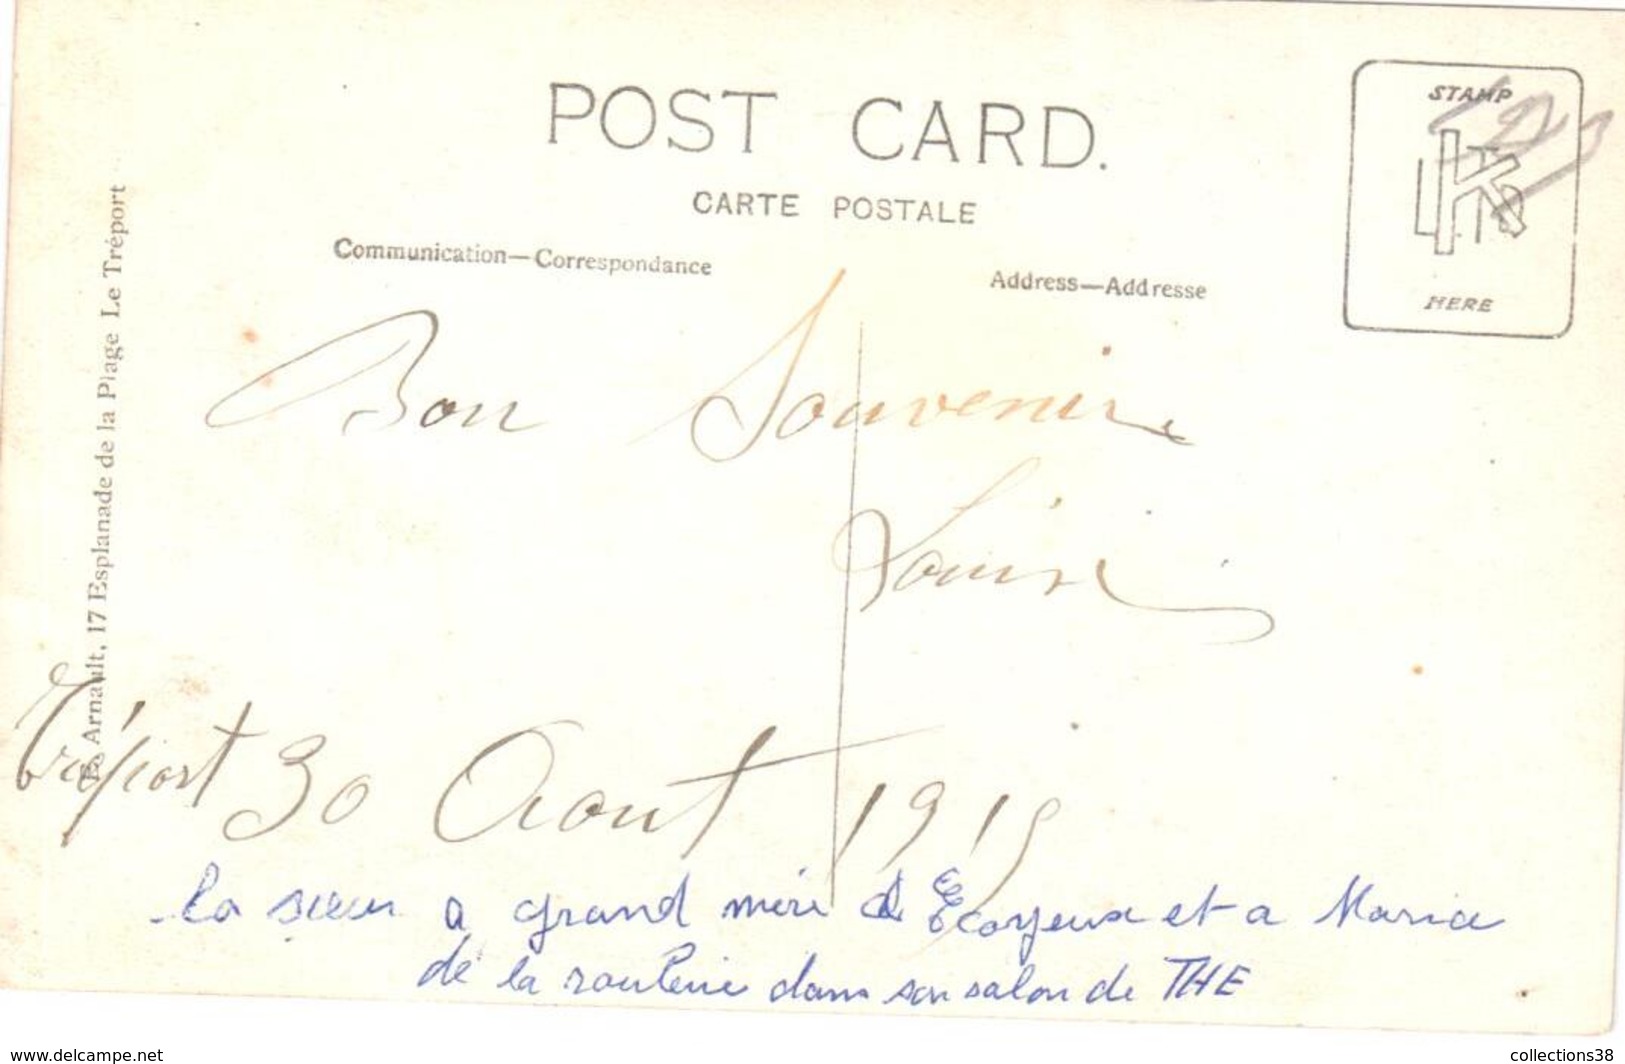 POST CARD.
CARTE POSTALE
Communication—Correspondance
Address—Addresse
STAMP
HERE
E. Arnault, 17 Esplanade de la Plage Le Tréport
Bon Souvenir
Louise
Tréport 30 Aout 1919
la sœur a grand mère d Ecoyeux et a Maria
de la routerie dans son salon de THE
www.delcampe.net
collections38